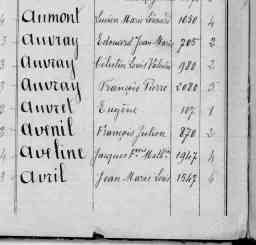 Aumont Lucien Marie Léonard 1050 4
Auvray Edouard Jean Marie 705 2
Auvray Célestin Louis 980 2
Auvray François Pierre 2080 5
Auvret Eugène 107 1
Avenil François Julien 870 2
Aveline Jacques 1947 4
Avril Jean Marie Louis 1547 4